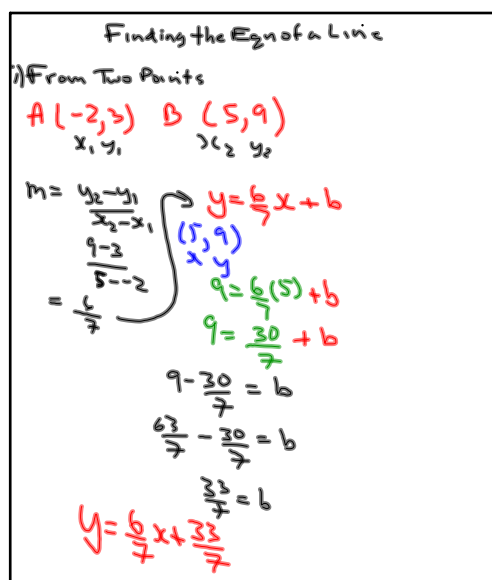 Finding the Eqn of a Line
i) From Two Points
A (-2,3) B (5,9)
x₁ y₁ x₂ y₂
m = y₂-y₁/x₂-x₁
9-3/5--2
= 6/7
y = 6/7 x + b
(5, 9)
x y
9 = 6/7 (5) + b
9 = 30/7 + b
9 - 30/7 = b
63/7 - 30/7 = b
33/7 = b
y = 6/7 x + 33/7